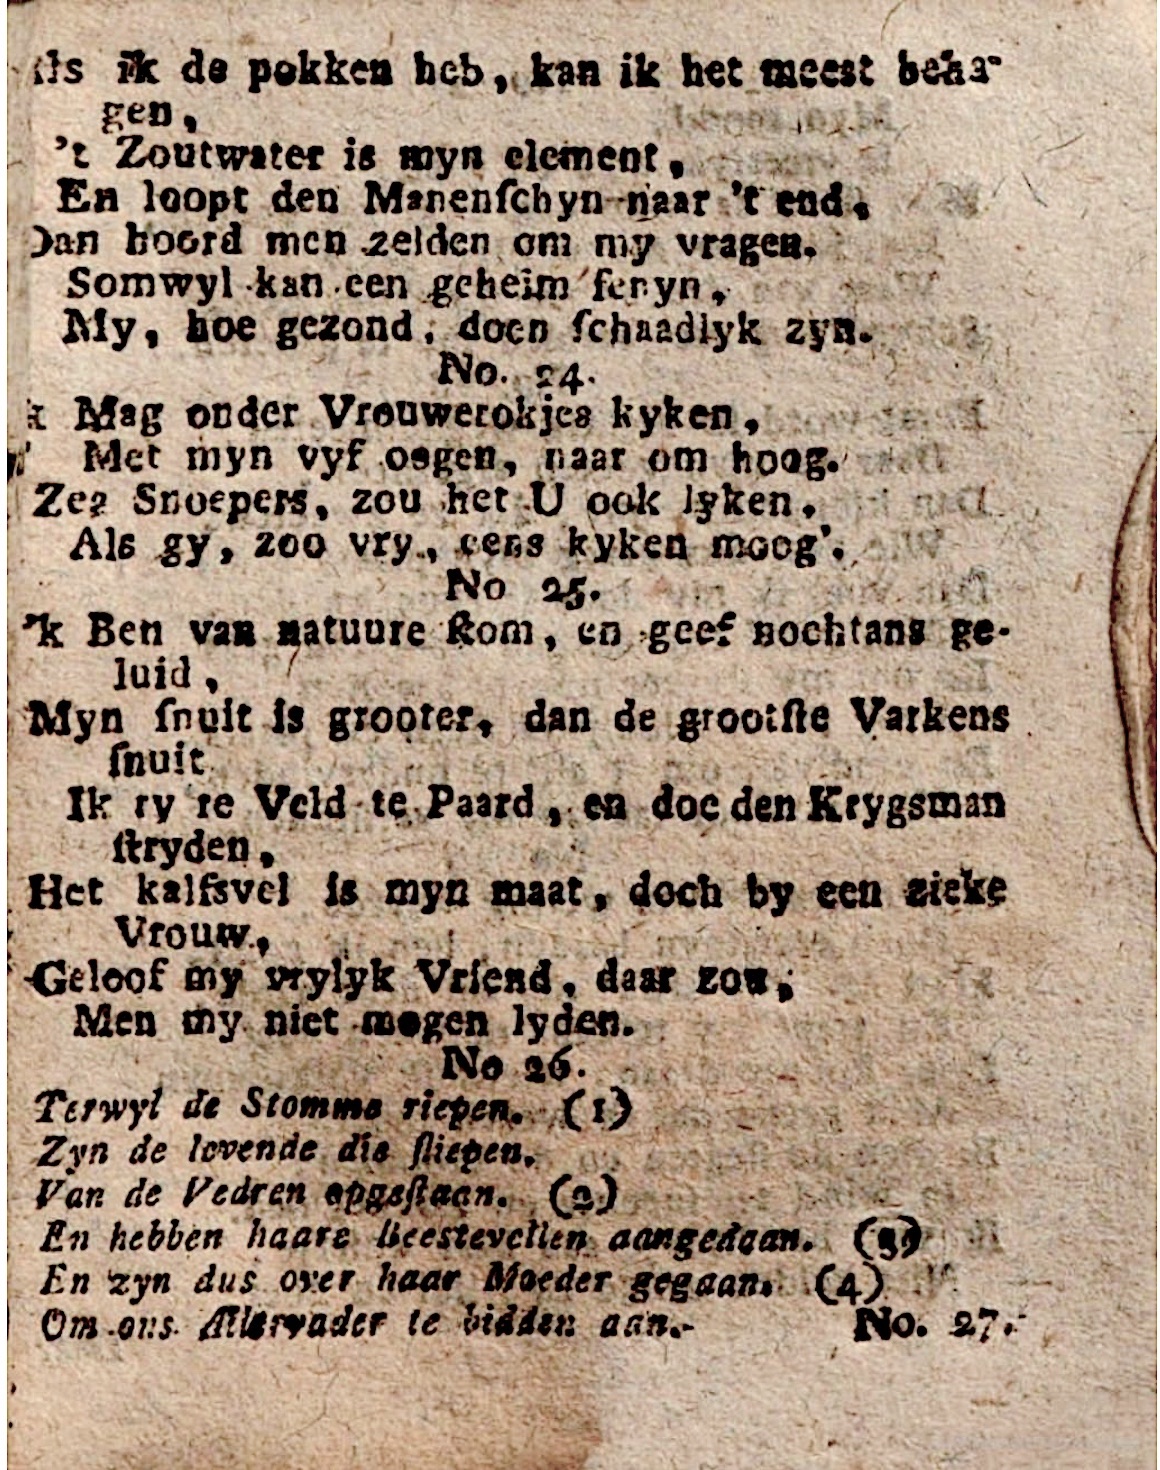 Als ik de pokken heb, kan ik het meest beha-
gen,
't Zoutwater is myn element,
En loopt den Manenſchyn naar 't end,
Dan hoord men zelden om my vragen.
Somwyl kan een geheim fenyn,
My, hoe gezond, doen ſchaadlyk zyn.
No. 24.
k Mag onder Vrouwerokjes kyken,
Met myn vyf oogen, naar om hoog.
Zeg Snoepers, zou het U ook lyken,
Als gy, zoo vry, eens kyken moog'.
No 25.
'k Ben van natuure ſtom, en geef nochtans ge-
luid,
Myn ſnuit is grooter, dan de grootſte Varkens
ſnuit
Ik ry te Veld te Paard, en doe den Krygsman
ſtryden,
Het kalfsvel is myn maat, doch by een zieke
Vrouw,
Geloof my vrylyk Vriend, daar zou,
Men my niet mogen lyden.
No 26.
Terwyl de Stomme riepen. (1)
Zyn de levende die ſliepen.
Van de Vedren opgeſtaan. (2)
En hebben haare Beestevellen aangedaan. (3)
En zyn dus over haar Moeder gegaan. (4)
Om ons Allervader te bidden aan.-
No. 27.